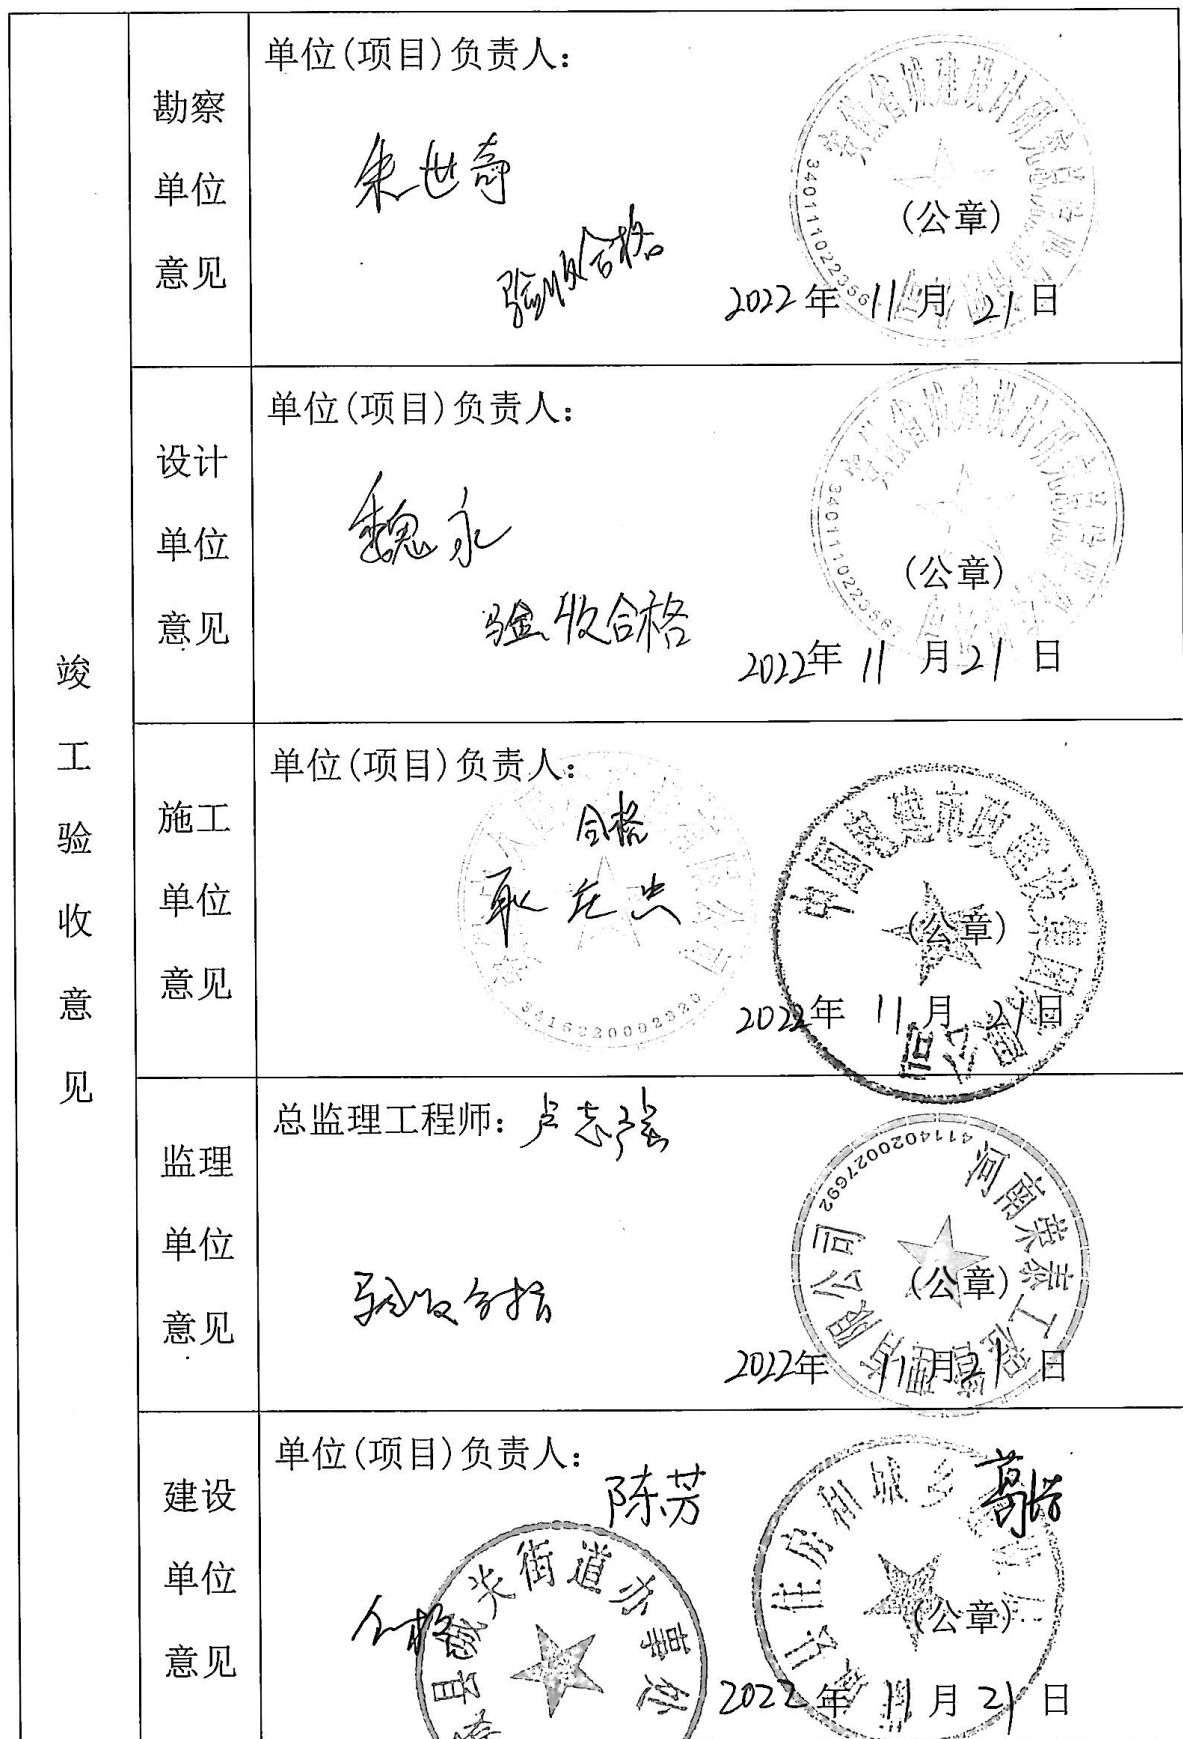 竣工验收意见
勘察单位意见
单位(项目)负责人:
朱世奇
验收合格
安徽省城建设计研究总院股份有限公司
(公章)
2022年 11月 21日
设计单位意见
单位(项目)负责人:
魏永
验收合格
安徽省城建设计研究总院股份有限公司
(公章)
2022年 11月 21日
施工单位意见
单位(项目)负责人:
合格
3416220002320
中国电建市政建设集团有限公司
(公章)
2022年 11月 21日
监理单位意见
总监理工程师: 卢志强
验收合格
河南荣泰工程管理有限公司
4114020027692
(公章)
2022年 11月 21日
建设单位意见
单位(项目)负责人:
陈芳
合格
街道办事处
住房和城乡
(公章)
2022年 11月 21日